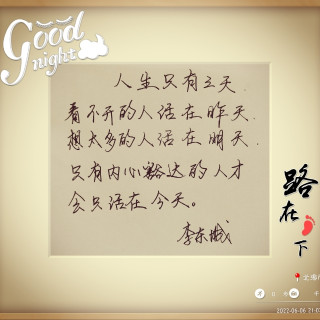 Good
night
人生只有三天
看不开的人活在昨天.
想太多的人活在明天.
只有内心豁达的人才
会只活在今天。
路
在
下